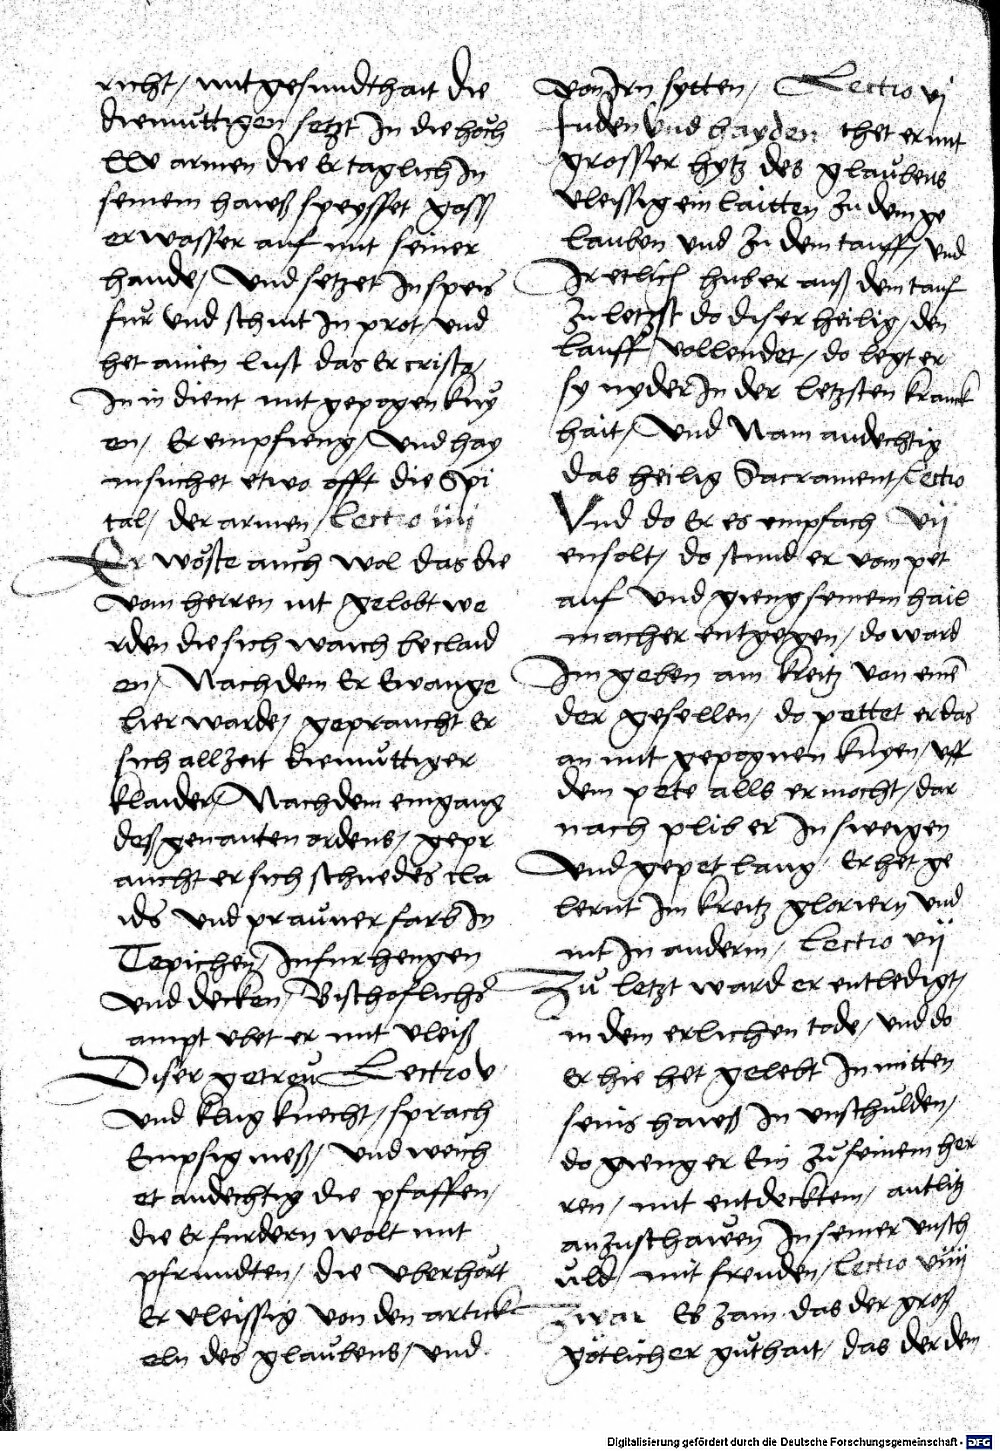 richt / mit gesundthait die
diemüttigen setzt In die höch
We armen die Er taglich In
seinem hawß speysset goss
er wasser auf mit seiner
hande / Vnd setzet In speis
für Vnd schnit In prot / vnd
het ainen lust das Er cristo /
In in dient mit gepogen kny
en / Er empfieng / Vnd hay
msuchet etwo offt die Spi
tal / der armen / Lectio iiij
Er wöste auch wol das die
vom herren nit gelobt we
rden die sich waich beclaid
en / Nachdem Er Ewange
lier warde / gepraucht Er
sich allzeit diemüttiger
klaider / Nachdem eingang
deß genanten ordens / gepr
aucht er sich schnedes cla
ids vnd prauner farb In
Tepichen / In furhengen
vnd decken / Bischoflichs
ampt vbet er mit vleiß
Diser getreu Lectio v
vnd klug knecht / sprach
Empsig meß / vnd weich
et andechtig die pfaffen /
die Er furdern wolt mit
pfrundten / die vberhört
Er vleissig von den artick
eln des glaubens / vnd
von Irn sytten / Lectio vj
Juden Vnd hayden thet er mit
grosser hytz des glaubens
vleissig ein laitten zu dem ge
lauben vnd zu dem tauff / vnd
Ir etlich hub er auß dem tauf
Zu letzst do diser heilig / den
lauff vollendet / do legt er
sy nyder In der letzsten kranck
hait / Vnd Nam andechtig
das heilig Sacrament / Lectio
Vnd do Er es empfach vij
en solt / do stund er vom pet
auf vnd gieng seinem hail
macher entgegen / do ward
Im geben am kreitz von eine
der gesellen / do pettet er das
an mit gepognen knyen / vff
dem pete alls er mocht / dar
nach plib er In sweigen
Vnd gepet lang Er het ge
lernt Im kreitz gloriern vnd
nit In anderm / Lectio vij
Zu letzt ward er entledigt /
in dem erlichen tode / vnd do
Er hie het gelebt In mitten
seins hawß In vnschulden /
do gieng er Ein zu seinem her
ren / mit entdecktem / antlitz
anzuschawen In seiner vnsch
uld / mit freuden / Lectio viiij
zwar Es zam das der groß
götlicher guthait / das der dem
Digitalisierung gefördert durch die Deutsche Forschungsgemeinschaft - DFG